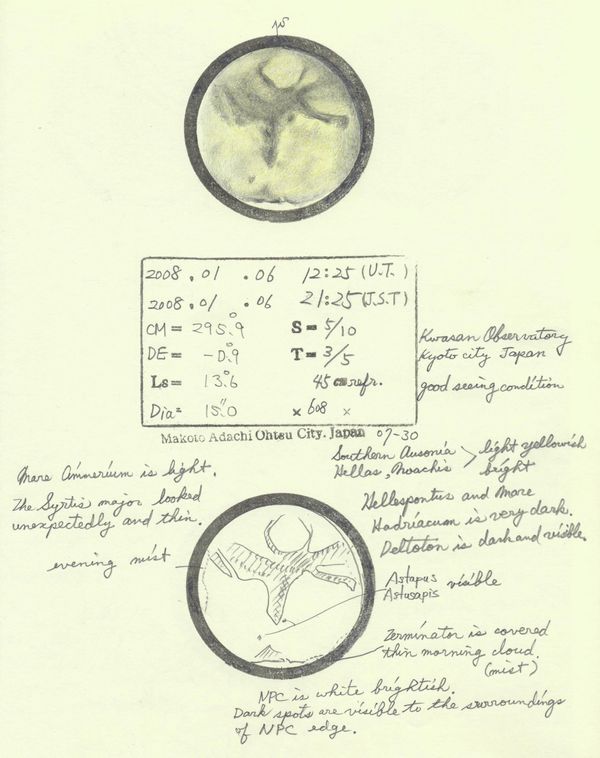 2008.01.06 12:25(U.T.)
2008.01.06 21:25(J.S.T)
CM= 295.°9 S= 5/10
DE= -0.°9 T= 3/5
Ls= 13.°6 45cm refr.
Dia= 15.″0 × 608 ×
Kwasan Observatory
Kyoto city Japan
good seeing condition
Makoto Adachi Ohtsu City. Japan 07-30
Southern Ausonia
Hellas, Noachis
light yellowish
bright
Mare Cimmerium is light.
The Syrtis major looked
unexpectedly and thin.
Hellespontus and Mare
Hadriacum is very dark.
Deltoton is dark and visible.
evening mist
Astapus
Astusapis
visible
Terminator is covered
thin morning cloud.
(mist)
NPC is white brightish.
Dark spots are visible to the surroundings
of NPC edge.